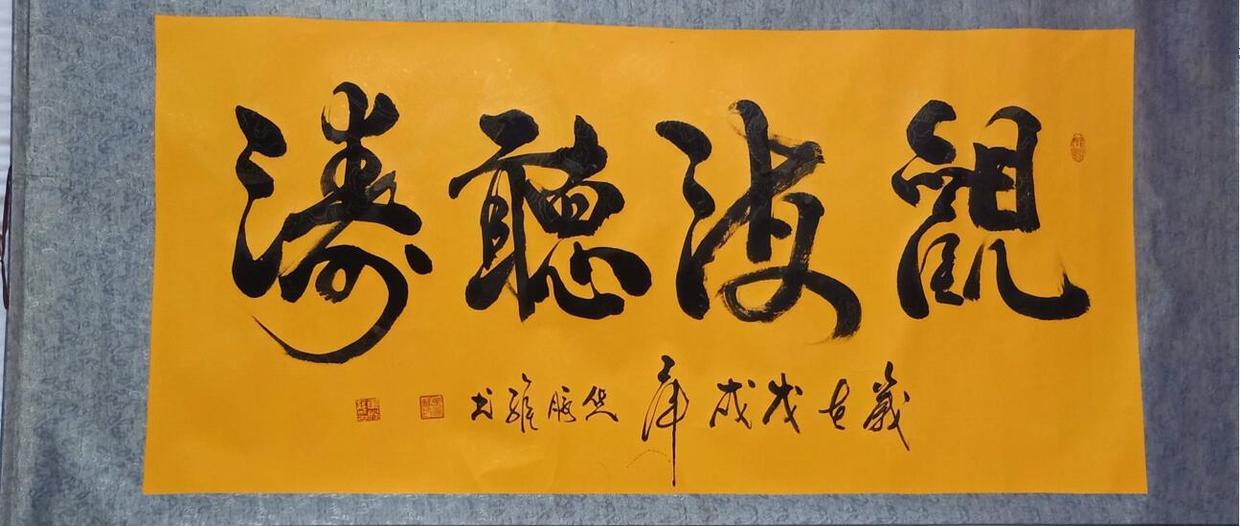 觀海聽濤
歲在戊戌年
書